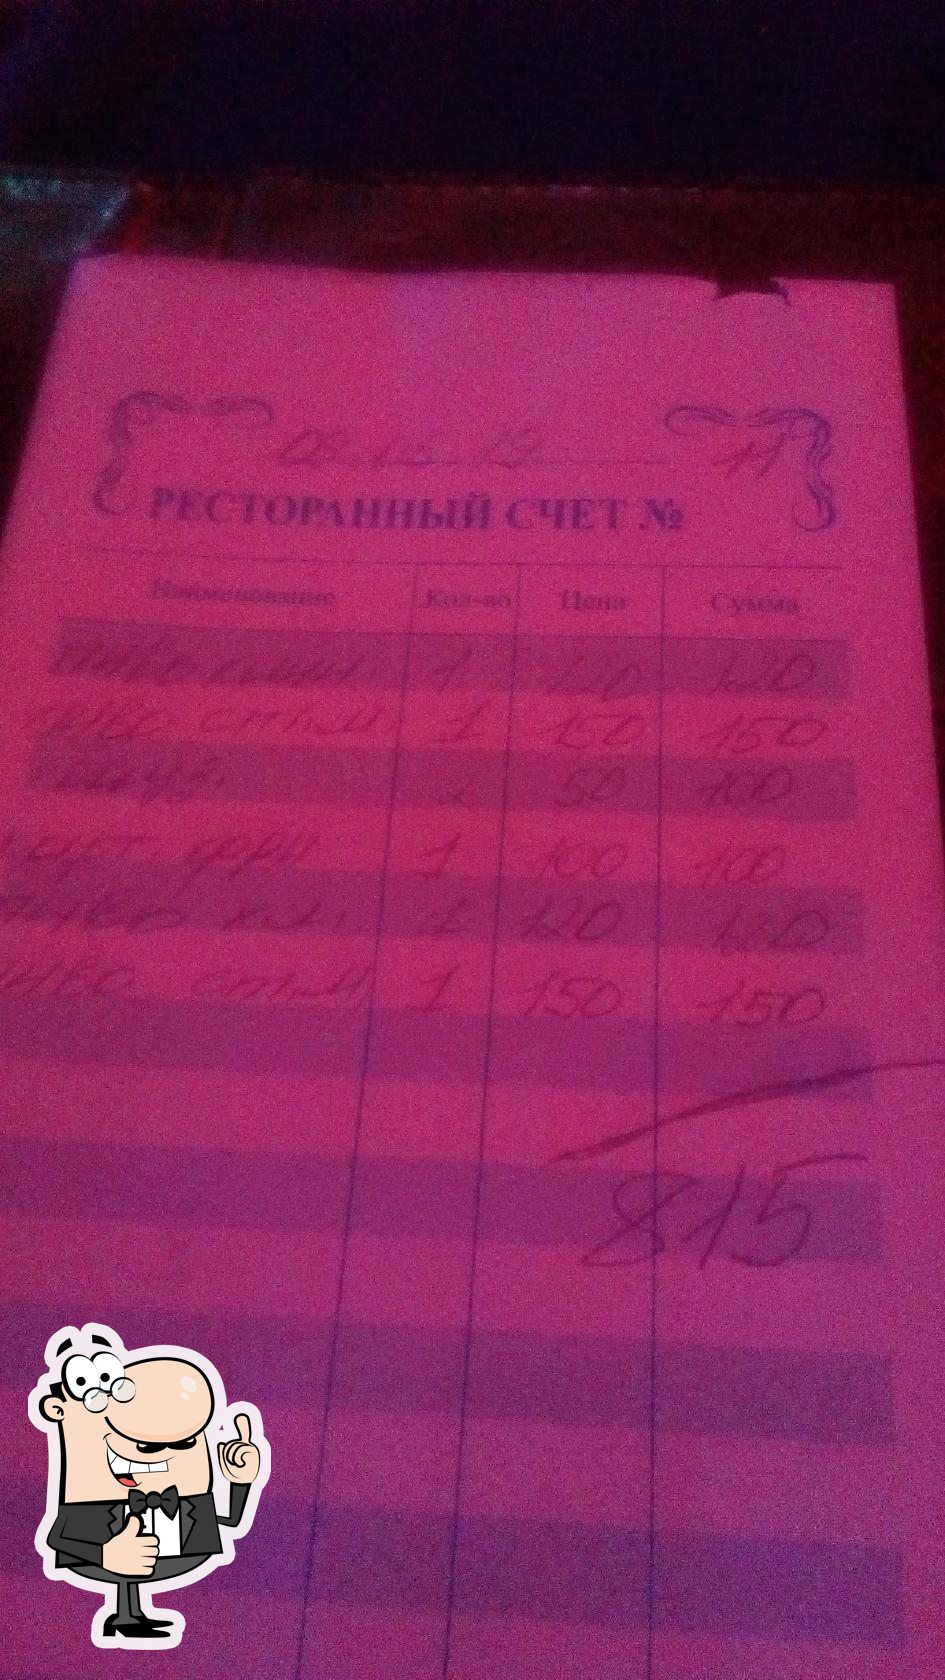 09.05.19 11
РЕСТОРАННЫЙ СЧЕТ №
Наименование Кол-во Цена Сумма
пиво 1 120 120
пиво ст.м. 1 150 150
2 50 100
фри 1 100 100
пиво 1 120 120
пиво ст.м. 1 150 150
815